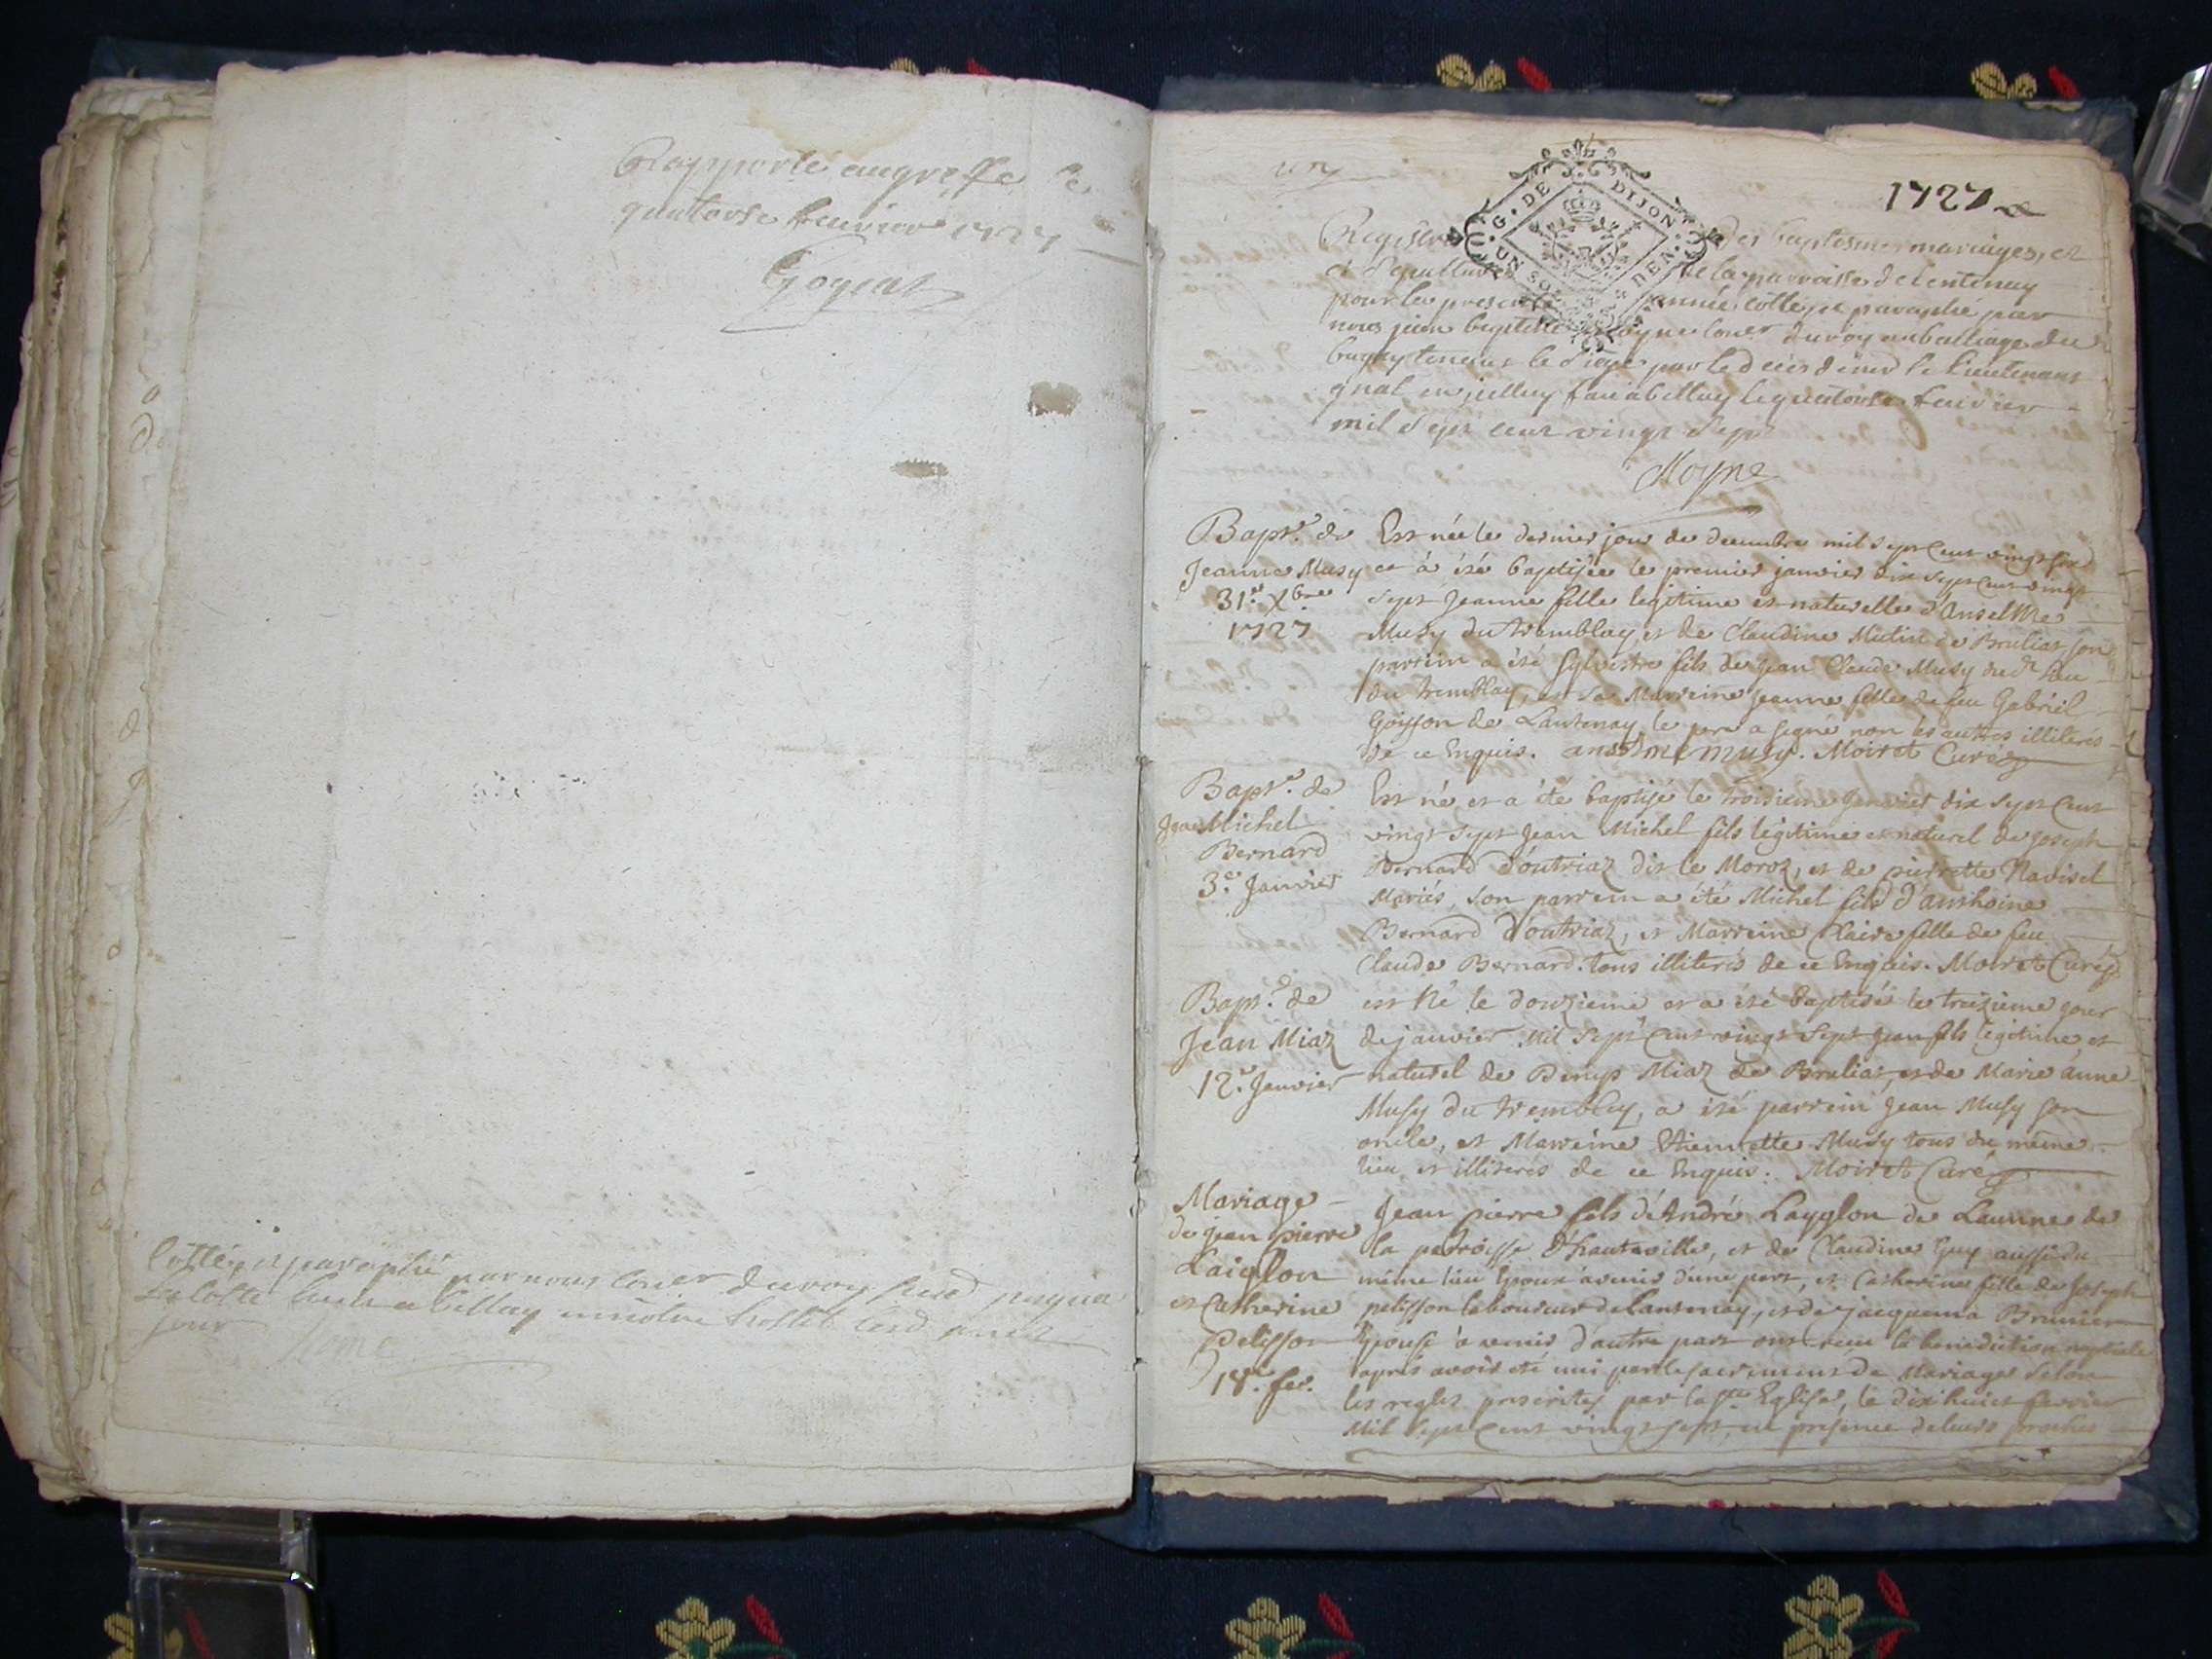 Rapporté au greffe le
quatorse feuvier 1727
Gogeat
Cottéz et paraphé par nous Coner du roy jusqua
la Cotte a bellay en notre hostel lesd an et
jour
un
1727
G. DE DIJON
UN SOL DEN.
Registre des baptesmes mariages, et
et Sepultures de la parroisse de Lentenay
pour la presente année cotté, et paraphé par
nous jean baptiste Moyne Coner du roy au balliage du
bugey tenant le Siege par le déces de mr le Lieutenant
gnal en jcelluy fait a bellay le quatorse feuvier
mil Sept cent vingt Sept
Moyne
Bapt.e de
Jeanne Musy
31.e Xbre
1727
Est née le dernier jour de decembre mil sept cent vingt six
et à été baptisée le premier janvier dix sept cent vingt
sept Jeanne fille legitime et naturelle d'Anselthe
Musy du tremblay, et de Claudine Mutin de Brulias son
parrein a été Sylvestre fils de Jean Claude Musy du dt lieu
du tremblay, et sa Marreine Jeanne fille de feu Gabriel
Goisson de Lantenay, le pere a signé non les autres illiterés
de ce Enquis. anselme musy. Moiret Curé
Bapt.e de
Jean Michel
Bernard
3.e Janvier
Est né et a été baptisé le troisieme janvier dix sept cent
vingt sept Jean Michel fils legitime et naturel de joseph
Bernard d'outriaz dit le Moroz, et de pierrette Navisel
Mariés, son parrein a été Michel fils d'anthoine
Bernard d'outriaz, et Marreine Claire fille de feu
Claude Bernard. tous illiterés de ce Enquis. Moiret Curé
Bapt.e de
Jean Miaz
12.e Janvier
est Né le douzieme, et a été baptisé le treizieme jour
de janvier Mil Sept cent vingt Sept Jean fils legitime et
naturel de Denys Miaz de Brulias, et de Marie anne
Musy du tremblay, a été parrein Jean Musy son
oncle, et Marreine Etiennette Musy tous du même
lieu et illiterés de ce Enquis. Moiret Curé
Mariage
de jean pierre
Laiglon
et Catherine
Pelisson
18.e fev.
Jean pierre fils d'André Layglon de Laumne de
la parroisse d'hauteville, et de Claudine Guy aussi du
même lieu Epoux avenir d'une part, et Catherine fille de Joseph
pelisson laboureur de Lantenay, et de jacquema Brunier
Epouse à venir d'autre part ont reçu la benediction nuptiale
aprés avoir eté uni par le sacrement de Mariage Selon
les regles prescrites par la Ste Eglise, le dix huict fevrier
Mil Sept cent vingt sept, en presence de leurs proches